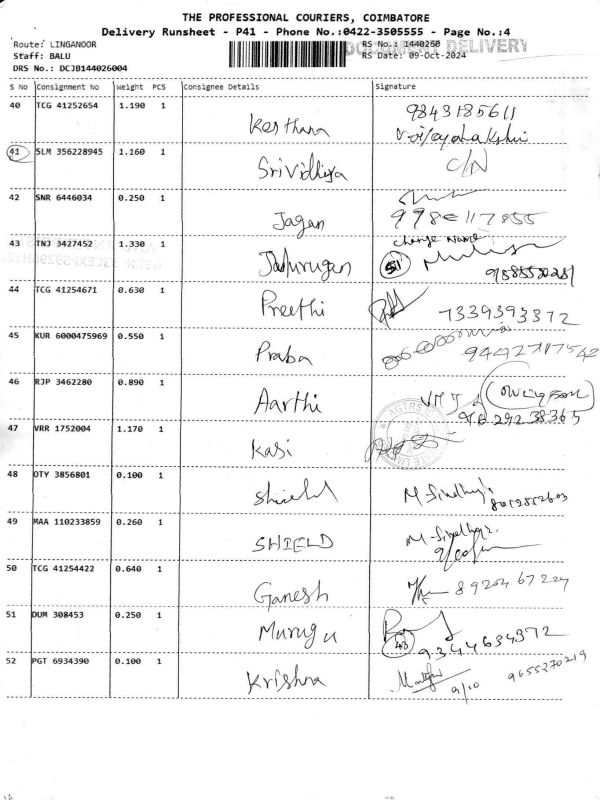 THE PROFESSIONAL COURIERS, COIMBATORE
Delivery Runsheet - P41 - Phone No.:0422-3505555 - Page No.:4
Route: LINGANOOR RS No.: 1440260 DOCUMENT DELIVERY
Staff: BALU RS Date: 09-Oct-2024
DRS No.: DCJB144026004
S No Consignment No Weight PCS Consignee Details Signature
40 TCG 41252654 1.190 1 9843185611
Kerthana Vijayalakshmi
41 SLM 356228945 1.160 1 C/N
Srividhya
42 SNR 6446034 0.250 1
Jagan
43 TNJ 3427452 1.330 1 change Name
51
44 TCG 41254671 0.630 1
Preethi 7339393372
45 KUR 6000475969 0.550 1
Praba 9442717542
46 RJP 3462280 0.890 1
Aarthi
47 VRR 1752004 1.170 1
Kasi
48 OTY 3856801 0.100 1
Shield
49 MAA 110233859 0.260 1
SHIELD
50 TCG 41254422 0.640 1
Ganesh
51 DUM 308453 0.250 1
Murugu 43 9344634372
52 PGT 6934390 0.100 1
Krishna 9/10 9655270219